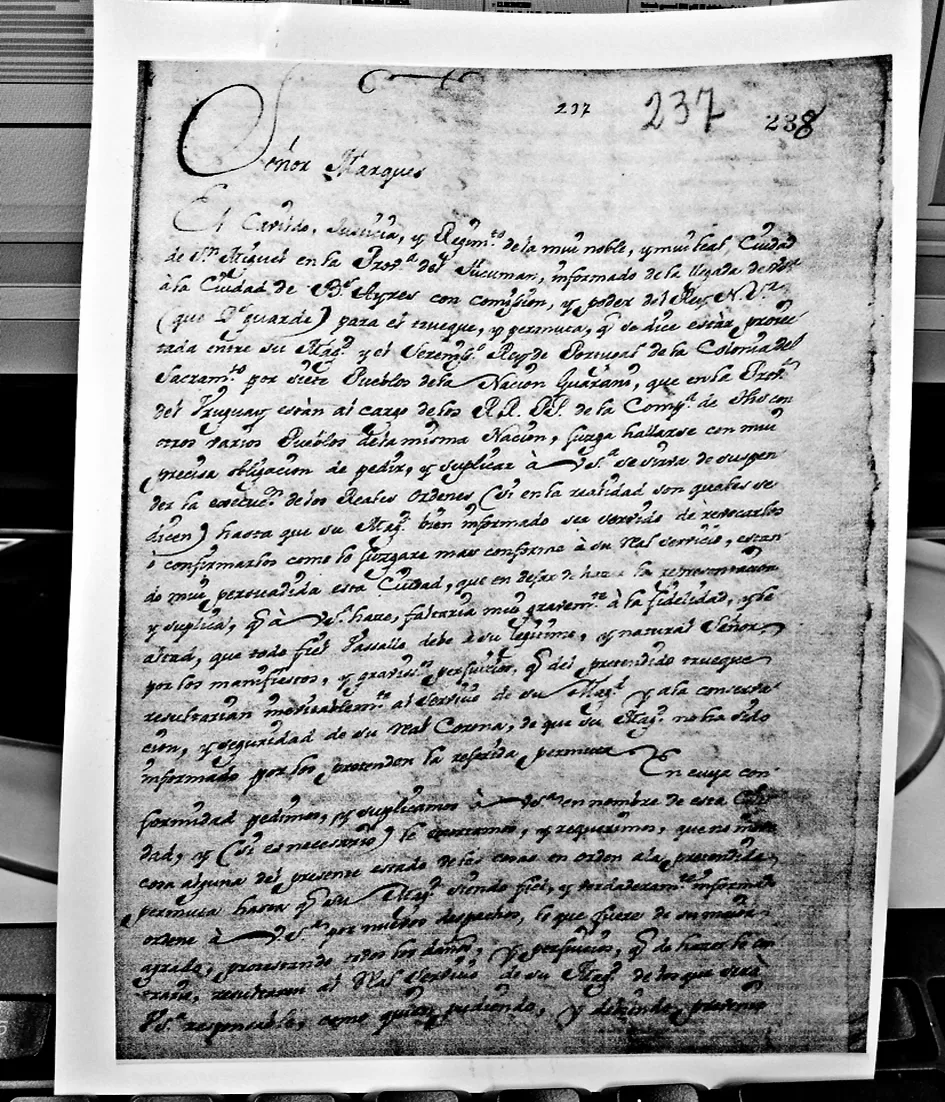 237 237 238
Señor Marques
El Cavildo, Justicia, y Regim.to de la mui noble, y mui leal Ciudad
de S.n Miguel en la Prov.a del Tucuman, informado de la llegada de
à la Ciudad de B.s Ayres con comision, y poder del Rey N. S.r
(que D.s guarde) para el trueque, y permuta, q̃ se dice estàr proiec
tada entre su Mag.d y el Serenis.o Rey de Portugal de la Colonia del
Sacram.to por siete Pueblos de la Nacion Guarani, que en la Prov.a
del Uruguay estàn al cargo de los R.R. P.P. de la Comp.a de Jhs con
otros varios Pueblos de la misma Nacion, juzga hallarse con mui
precisa obligacion de pedir, y suplicar à V.S.a se sirva de suspen
der la execuc.n de los Reales Ordenes (si en la realidad son quales se
dicen) hasta que su Mag.d bien informado sea servido de revocarlos
ò confirmarlos como lo juzgare mas conforme à su Real servicio, estan
do mui persuadida esta Ciudad, que en dejar de hacer la representacion
y suplica, q̃ à V.S.a hace faltaria mui gravem.te à la fidelidad, y le
altad, que todo fiel Vassallo debe à su legitimo, y natural Señor,
por los manifiestos, y graviss.s perjuicios, q̃ del pretendido trueque
resultarian inevitablem.te al servicio de su Mag.d y a la conserva
cion, y seguridad de su Real Corona, de que su Mag.d no ha sido
informado por los q̃ pretenden la referida permuta En cuya con
formidad pedimos, y suplicamos à V.S.a en nombre de esta Ciu
dad, y (si es necesario) le exortamos, y requerimos, que no inove
cosa alguna del presente estado de las cosas en orden a la pretendida
permuta hasta q̃ su Mag.d siendo fiel, y verdaderam.te informado
ordene à V.S.a por nuevos despachos, lo que fuere de su maior
agrado, protestando todos los daños, y perjuicios, q̃ de hacer lo con
trario, resultaren al Real Servicio de su Mag.d de los que serà
V.S.a responsable, como quien pudiendo, y debiendo